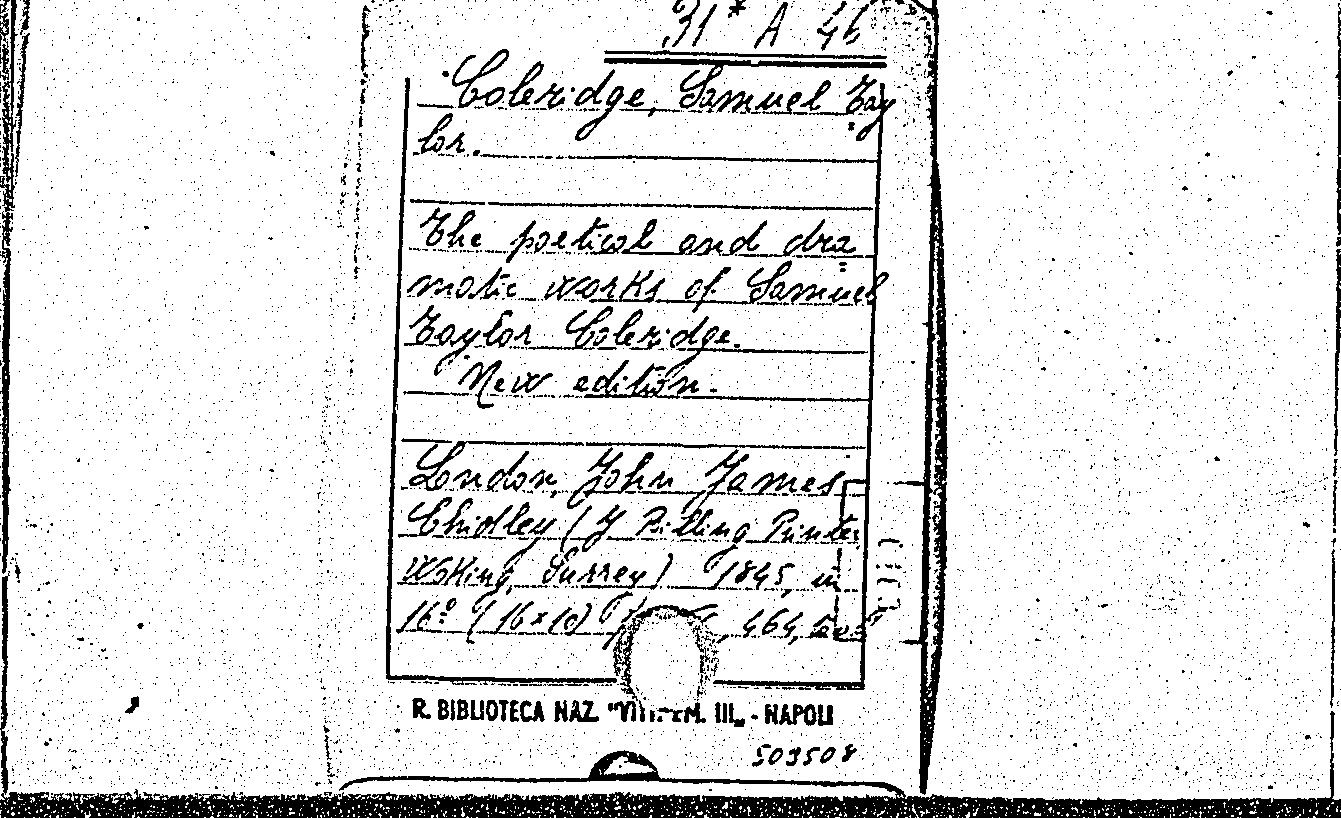 31* A 46
Coleridge, Samuel Tay
lor.
The poetical and dra
matic works of Samuel
Taylor Coleridge.
New edition.
London, John James
Chidley (J Billing Printer
Woking, Surrey) 1845, in
16º (16x10) 464,
R. BIBLIOTECA NAZ. "VITT. EM. III„ - NAPOLI
509508